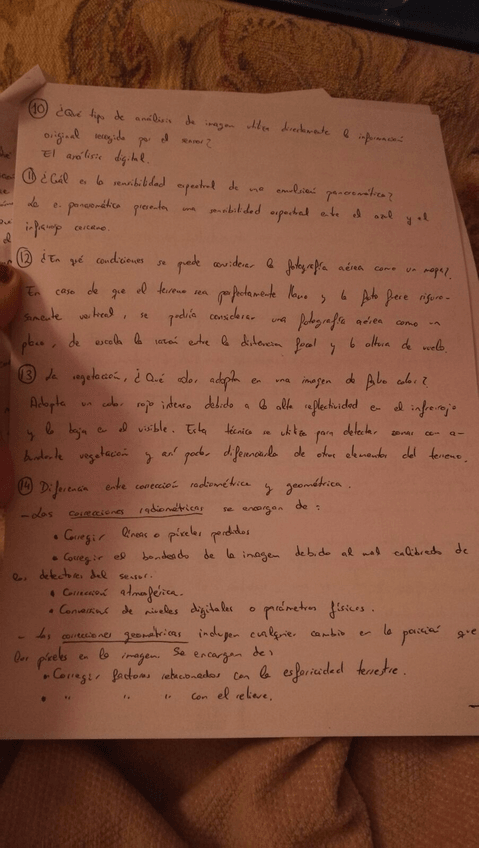 ⑩ ¿Qué tipo de análisis de imagen utiliza directamente la información
original recogida por el sensor?
El análisis digital.
⑪ ¿Cuál es la sensibilidad espectral de una emulsión pancromática?
La e. pancromática presenta una sensibilidad espectral entre el azul y el
infrarrojo cercano.
⑫ ¿En qué condiciones se puede considerar la fotografía aérea como un mapa?
En caso de que el terreno sea perfectamente llano y la foto fuese riguro-
samente vertical, se podría considerar una fotografía aérea como un
plano, de escala la razón entre la distancia focal y la altura de vuelo.
⑬ La vegetación, ¿Qué color adopta en una imagen de falso color?
Adopta un color rojo intenso debido a la alta reflectividad en el infrarrojo
y la baja en el visible. Esta técnica se utiliza para detectar zonas con a-
bundante vegetación y así poder diferenciarla de otros elementos del terreno.
⑭ Diferencia entre corrección radiométrica y geométrica.
- Las correcciones radiométricas se encargan de:
• Corregir líneas o píxeles perdidos
• Corregir el bandeado de la imagen debido al mal calibrado de
los detectores del sensor.
• Corrección atmosférica.
• Conversión de niveles digitales a parámetros físicos.
- Las correcciones geométricas incluyen cualquier cambio en la posición que
los píxeles en la imagen. Se encargan de:
• Corregir factores relacionados con la esfericidad terrestre.
• " " " con el relieve.